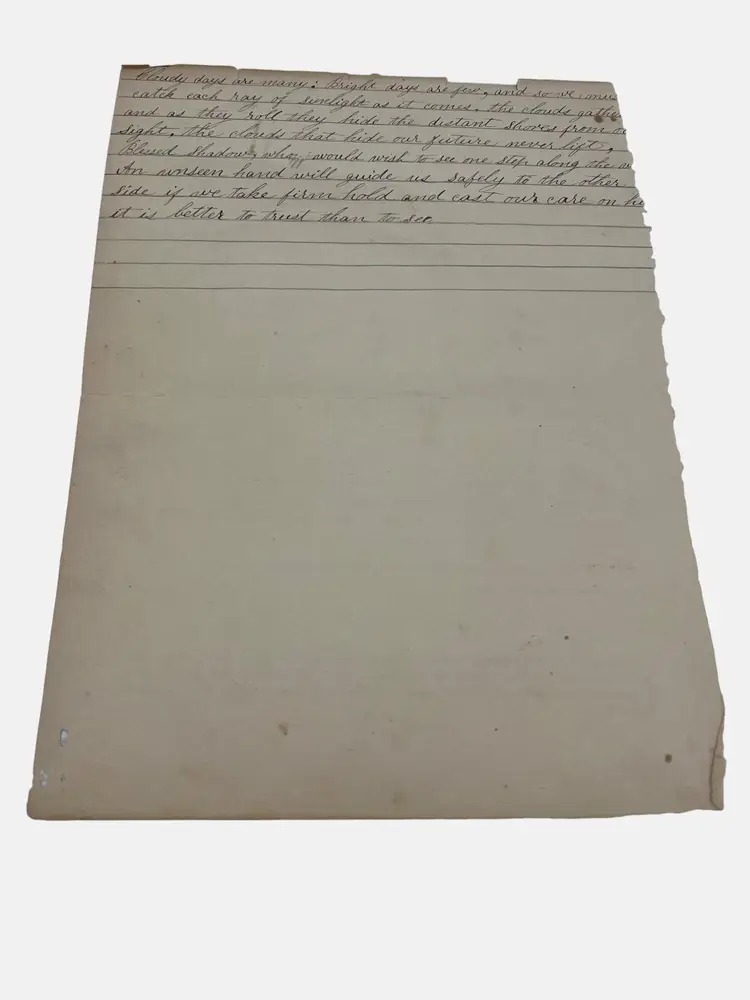 Cloudy days are many: Bright days are few, and so we mus
catch each ray of sunlight as it comes. the clouds gathe
and as they roll they hide the distant shores from ou
sight. the clouds that hide our future never lift.
Blessed shadow, who would wish to see one step along the w
An unseen hand will guide us safely to the other
side if we take firm hold and cast our care on hi
it is better to trust than to see